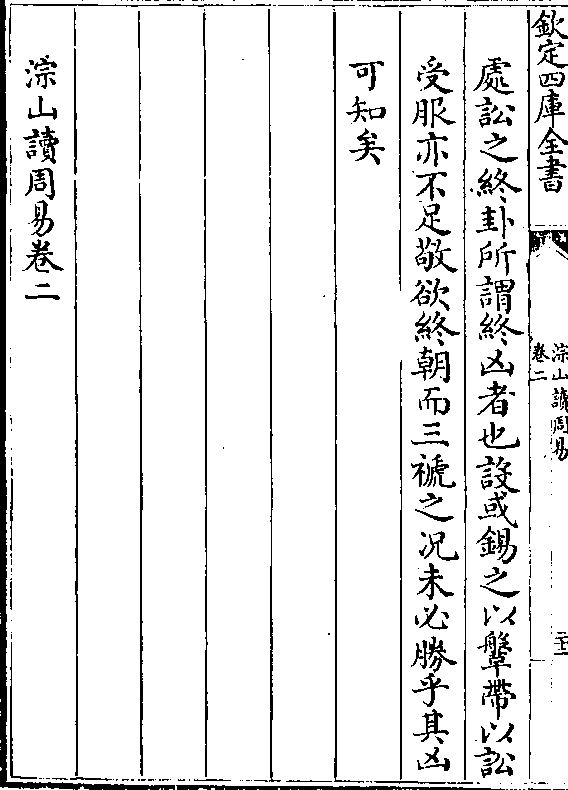 欽定四庫全書
淙山讀周易
卷二
處訟之終卦所謂終凶者也設或錫之以鞶帶以訟
受服亦不足敬欲終朝而三褫之况未必勝乎其凶
可知矣
淙山讀周易卷二